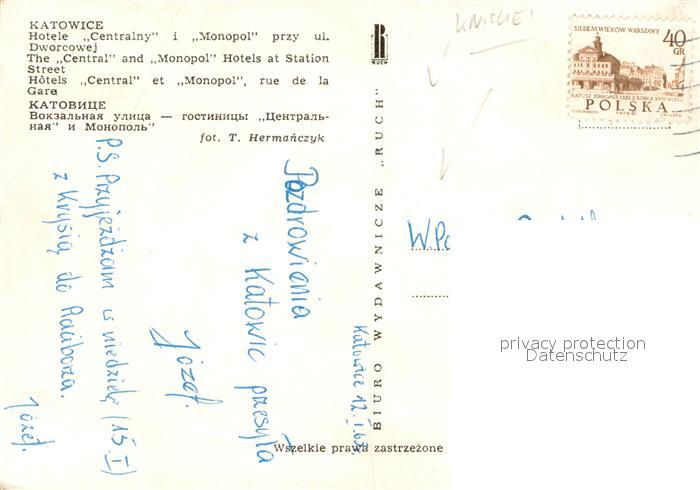 KATOWICE
Hotele „Centralny" i „Monopol" przy ul.
Dworcowej
The „Central" and „Monopol" Hotels at Station
Street
Hôtels „Central" et „Monopol", rue de la
Gare
КАТОВИЦЕ
Вокзальная улица — гостиницы „Централь-
ная" и Монополь"
fot. T. Hermańczyk
RUCH
BIURO WYDAWNICZE „RUCH"
Wszelkie prawa zastrzeżone
SIEDEM WIEKÓW WARSZAWY
40
GR
POLSKA
Pozdrowienia
z Katowic przesyła
Józef.
Katowice 12.I.63
P.S. Przyjeżdżam w niedzielę (15.I)
z Krysią do Raciborza.
Józef.
privacy protection
Datenschutz